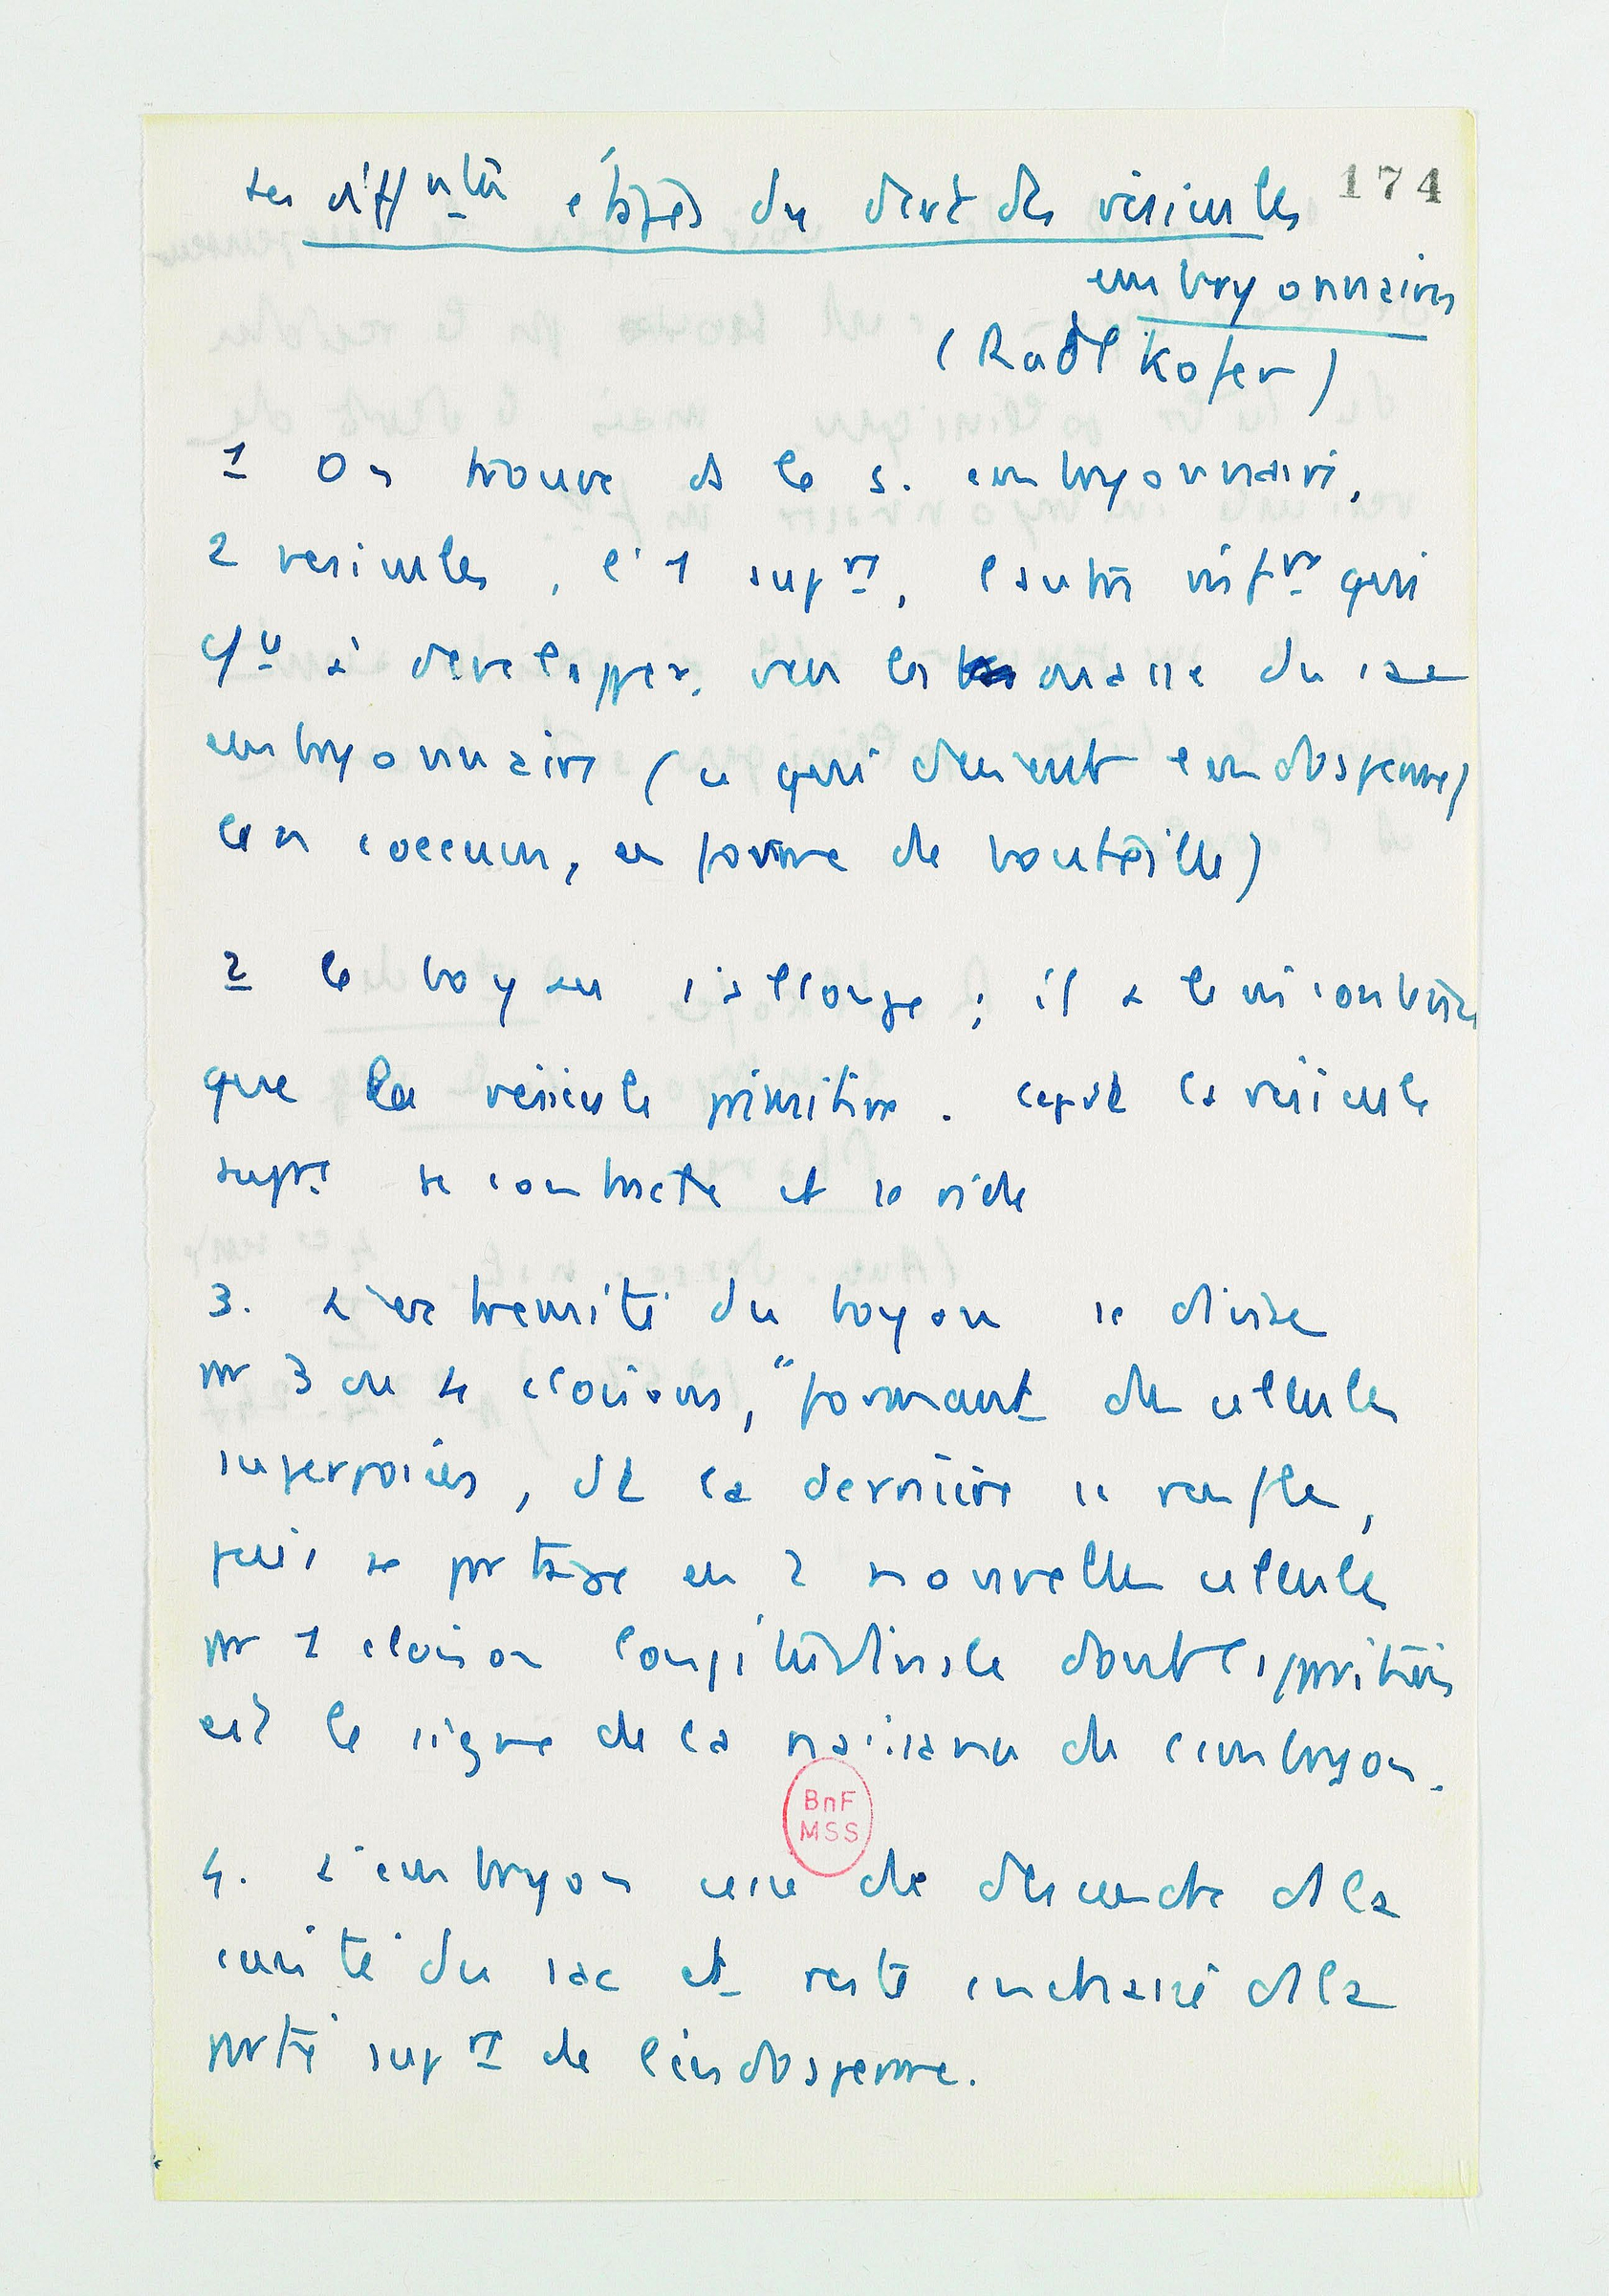 Les diff nts étapes du devt des vésicules 174
embryonnaires
(Radlkofer)
1 On trouve ds le s. embryonnaire,
2 vesicules, l'1 supre, l'autre infre qui
à developper, vers la masse du sac
embryonnaire (ce qui devient l'endosperme)
le coecum, en forme de bouteille)
2 le boyau s'allonge ; il a le contenu
que la vésicule primitive. Cepdt la vésicule
supre se contracte et se vide
3. L'extremité du boyau se divise
pr 3 ou 4 cloisons, "formant des cellules
superposées, dt la dernière se renfle,
puis se partage en 2 nouvelles cellules
pr 1 cloison longitudinale dont l'apparition
est le signe de la naissance de l'embryon.
BnF
MSS
4. L'embryon cesse de descendre ds la
cavité du sac et reste enchassé ds la
partie supre de l'endosperme.